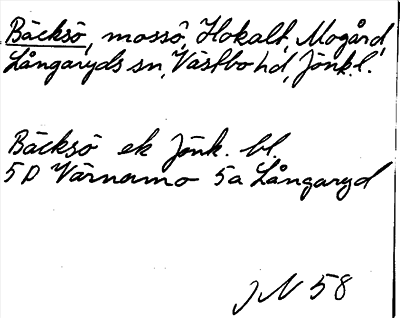 Bäcksö, mossö, Hokalt, Mogård,
Långaryds sn, Västbo hd, Jönk.l.
Bäcksö ek Jönk. bl.
5D Värnamo 5a Långaryd
JN 58